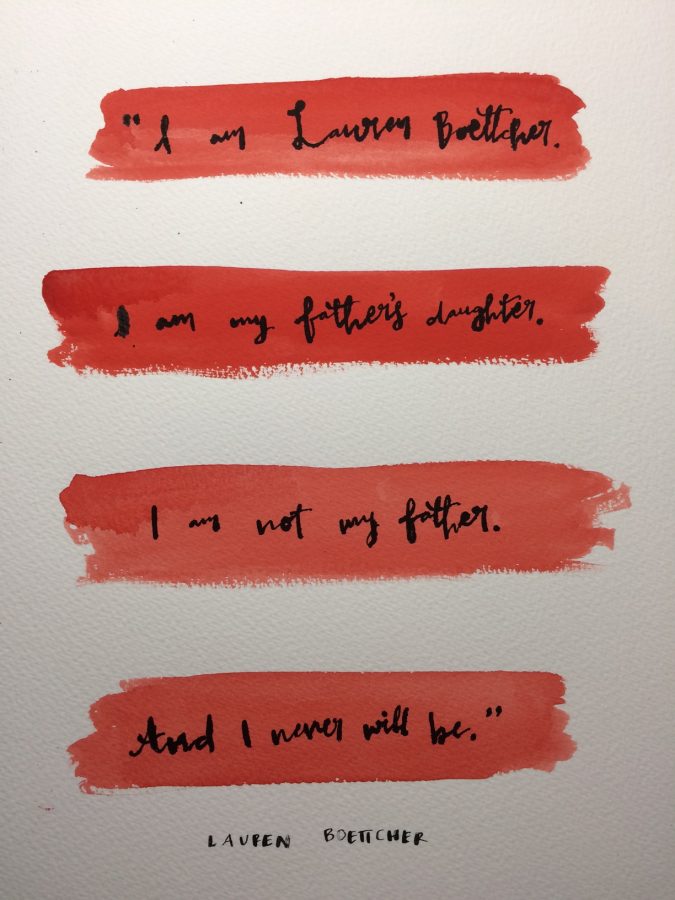 "I am Lauren Boettcher.
I am my father's daughter.
I am not my father.
And I never will be."
LAUREN BOETTCHER